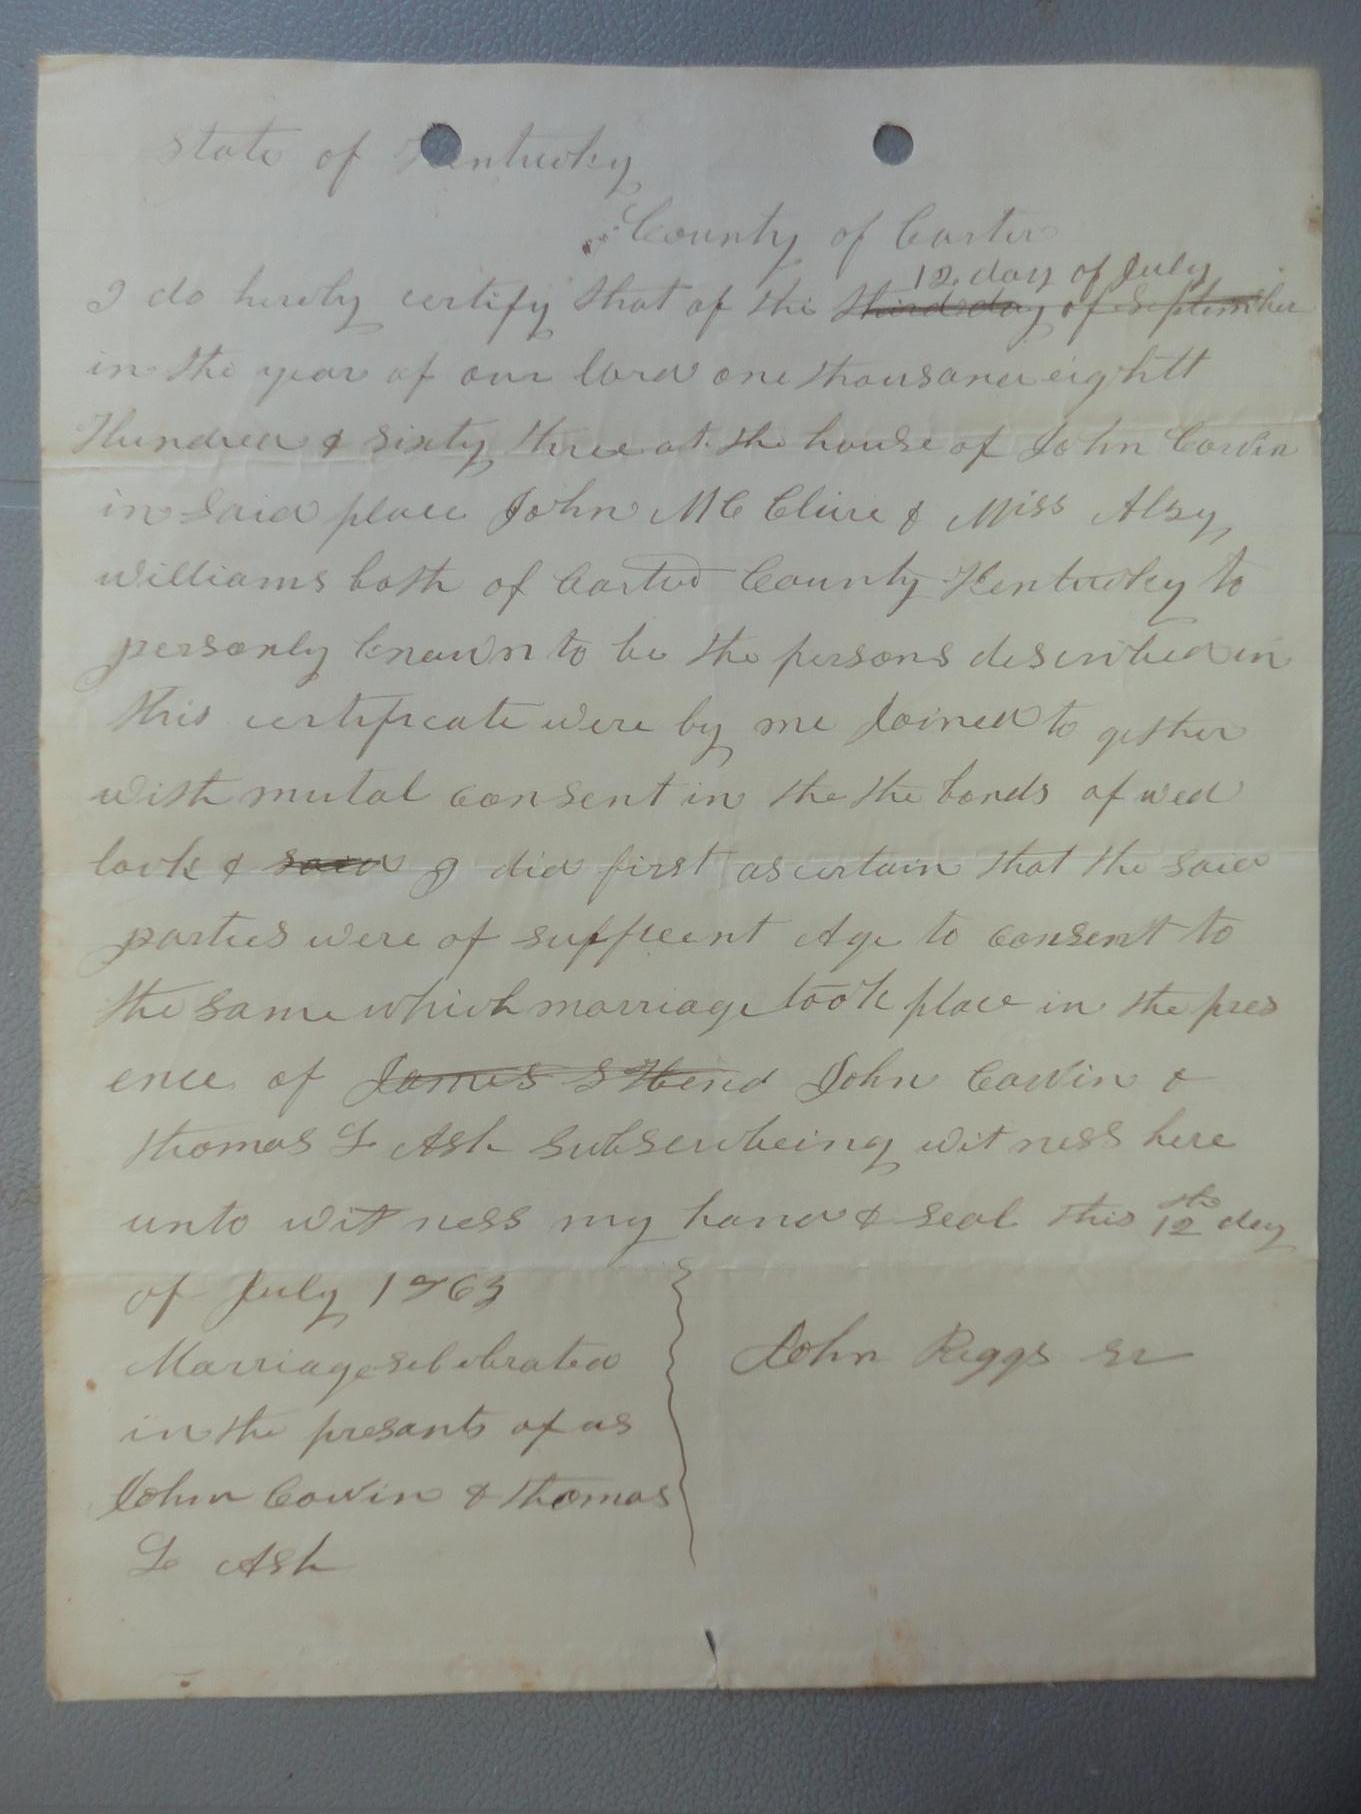 State of Kentucky
County of Carter
12 day of July
I do hereby certify that of the third day of September
in the year of our lord one thousand eightt
Hundred & sixty three at the house of John Cowin
in said place John MC Clure & Miss Alsy
williams both of Carter County Kentucky to
personly known to be the persons described in
this certificate were by me Joined to gether
with mutal consent in the the bonds of wed
lock & said I did first ascertain that the said
parties were of suffient Age to consent to
the same which marriage took place in the pres
ence of James S Hend John Cowin &
thomas L Ash subscribeing witness here
unto witness my hand & seal this 12th day
of July 1863
Marriage selebrated
in the presants of us
John Cowin & thomas
L Ash
John Riggs sr